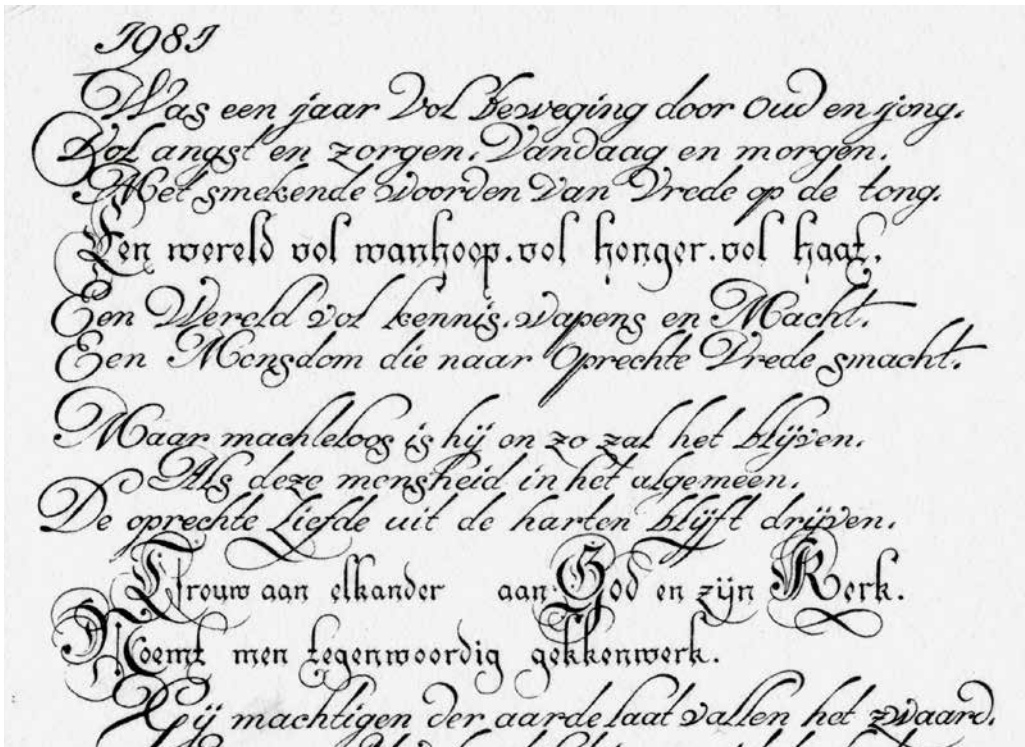 1981
Was een jaar Vol Beweging door Oud en jong.
Vol angst en zorgen. Vandaag en morgen.
Met smekende Woorden Van Vrede op de tong.
Een wereld vol wanhoop. vol honger. vol haat.
Een Wereld vol kennis. wapens en Macht.
Een Mensdom die naar Oprechte Vrede smacht.
Maar machteloos is hij en zo zal het blijven.
Als deze mensheid in het algemeen.
De oprechte Liefde uit de harten blijft drijven.
Trouw aan elkander aan God en zijn Kerk.
Noemt men tegenwoordig gekkenwerk.
Gij machtigen der aarde laat vallen het zwaard.